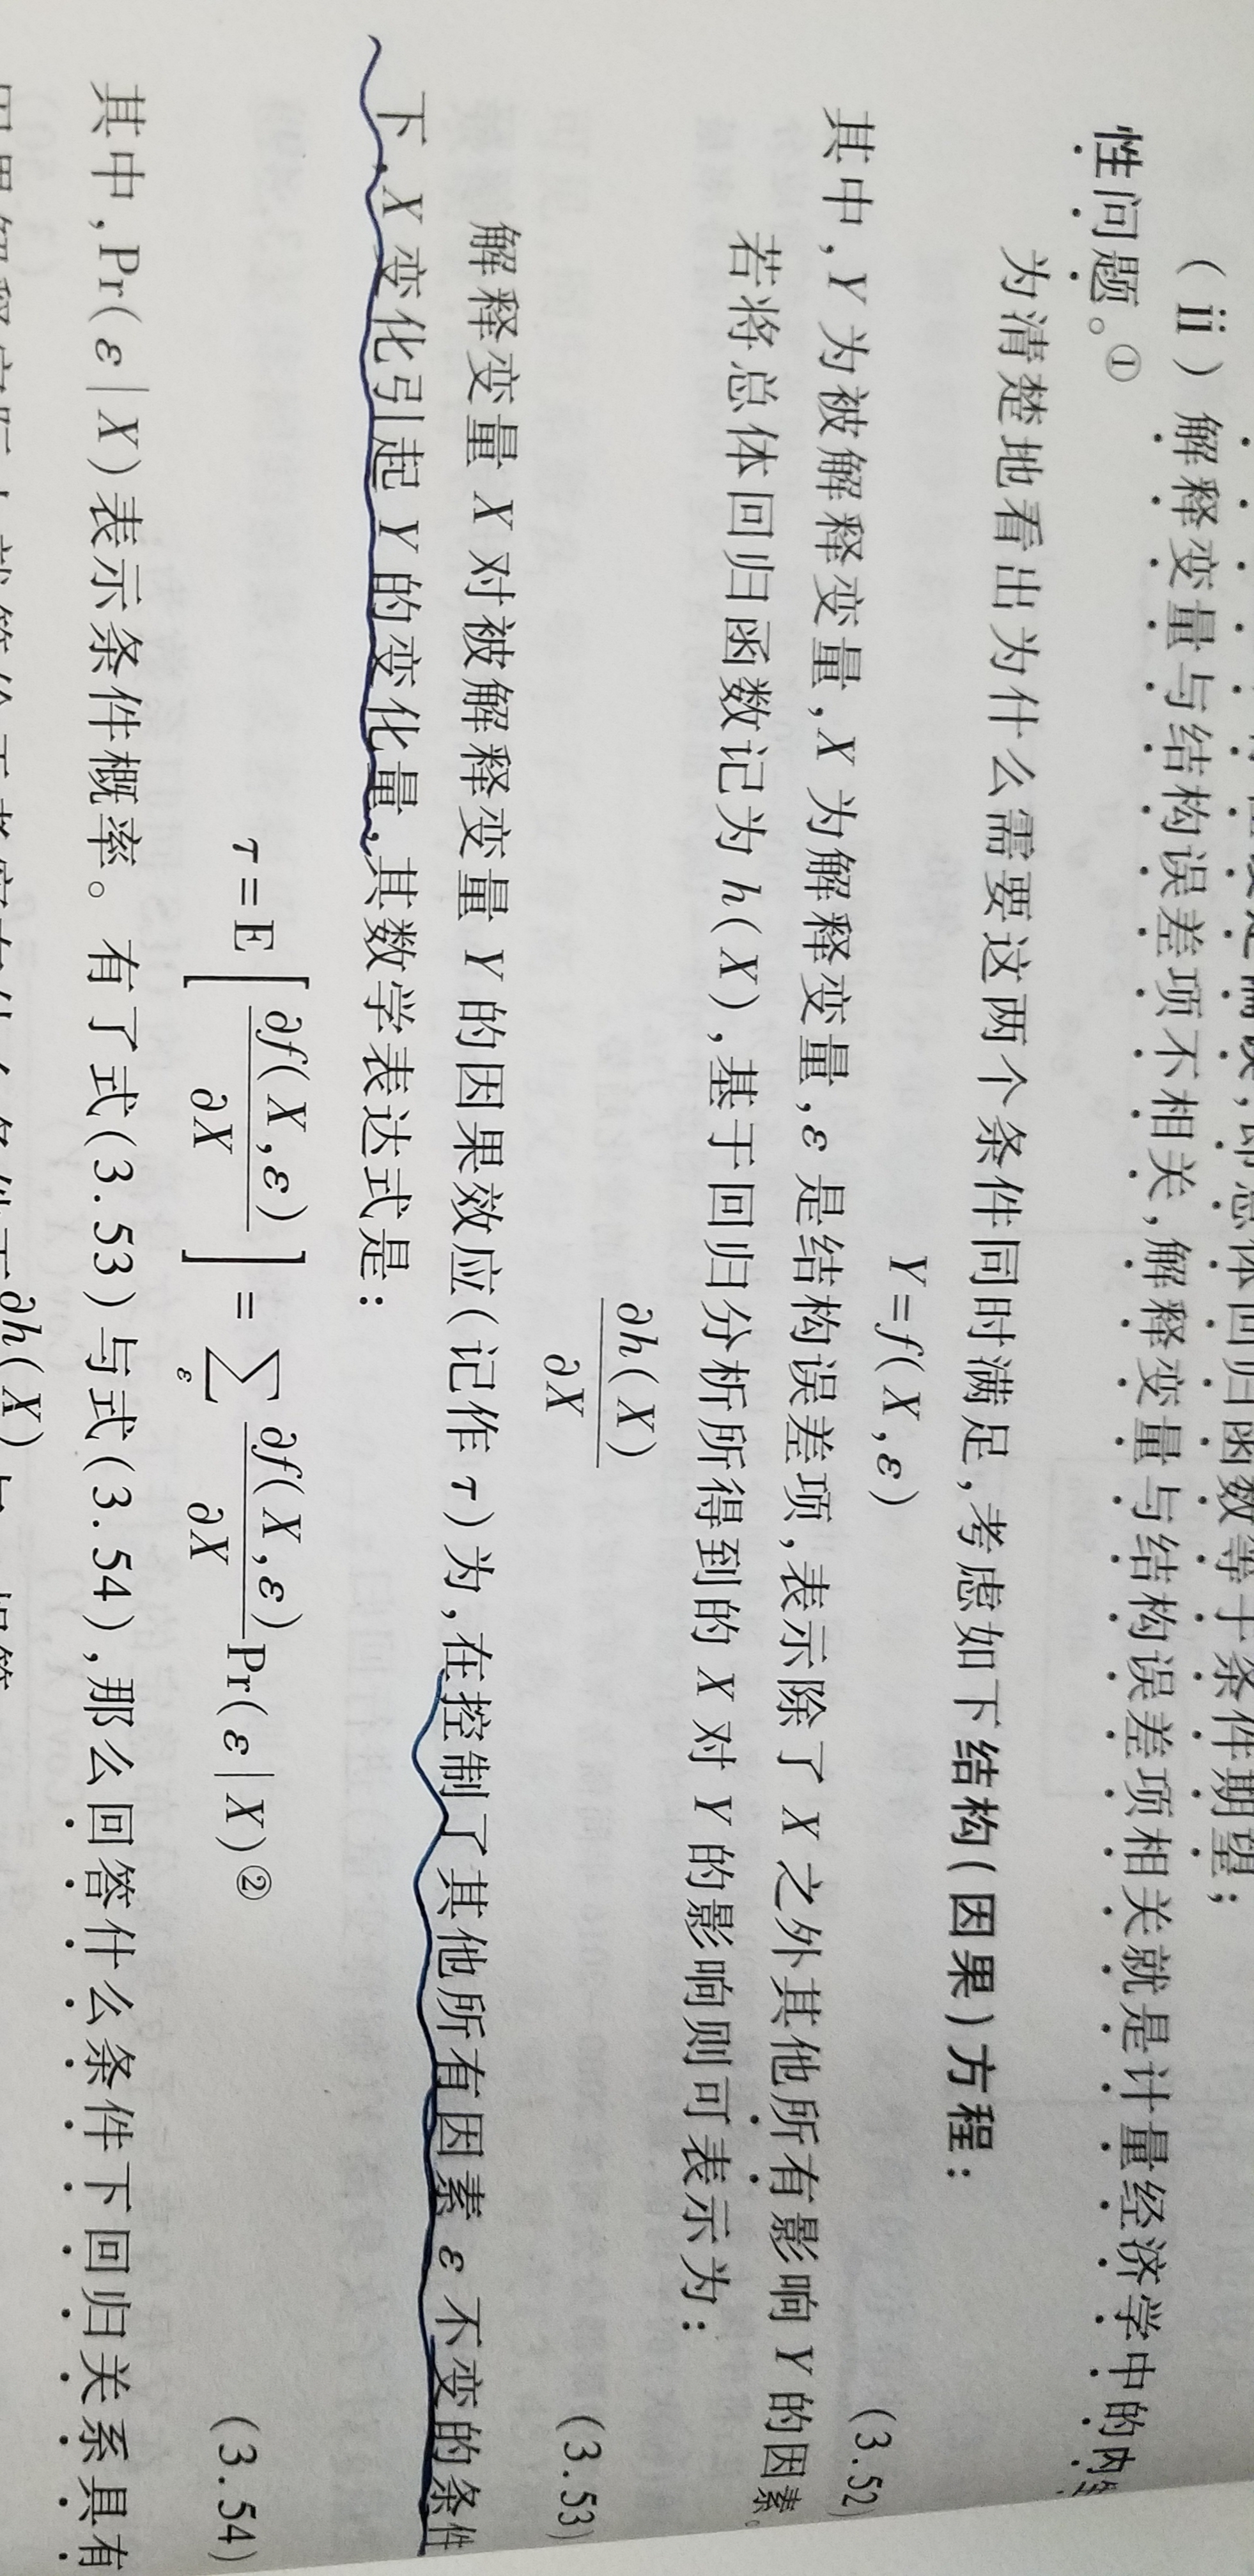 即总体回归函数等于条件期望；
（ii）解释变量与结构误差项不相关，解释变量与结构误差项相关就是计量经济学中的内生
性问题。①
为清楚地看出为什么需要这两个条件同时满足，考虑如下结构（因果）方程：
Y=f(X,ε) (3.52)
其中，Y 为被解释变量，X 为解释变量，ε 是结构误差项，表示除了 X 之外其他所有影响 Y 的因素。
若将总体回归函数记为 h(X)，基于回归分析所得到的 X 对 Y 的影响则可表示为：
∂h(X)/∂X (3.53)
解释变量 X 对被解释变量 Y 的因果效应（记作 τ）为，在控制了其他所有因素 ε 不变的条件
下，X 变化引起 Y 的变化量，其数学表达式是：
τ=E[∂f(X,ε)/∂X]=∑ε ∂f(X,ε)/∂X Pr(ε|X)② (3.54)
其中，Pr(ε|X)表示条件概率。有了式(3.53)与式(3.54)，那么回答什么条件下回归关系具有
∂h(X)